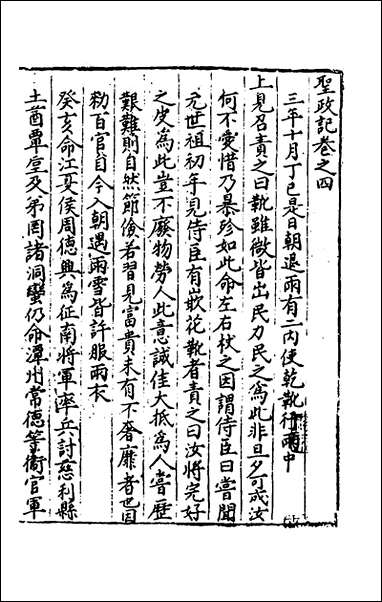 聖政記卷之四
三年十月丁巳是日朝退雨有二内使乾靴行雨中
上見召責之曰靴雖微皆出民力民之為此非旦夕可成汝
何不愛惜乃暴殄如此命左右杖之因謂侍臣曰嘗聞
元世祖初年見侍臣有嵌花靴者責之曰汝將完好
之皮為此豈不廢物勞人此意誠佳大抵為人嘗歷
艱難則自然節儉若習見富貴未有不奢靡者也因
勑百官自今入朝遇雨雪皆許服雨衣
癸亥命江夏侯周德興為征南將軍率兵討慈利縣
土酋覃垕及茅岡諸洞蠻仍命潭州常德等衛官軍